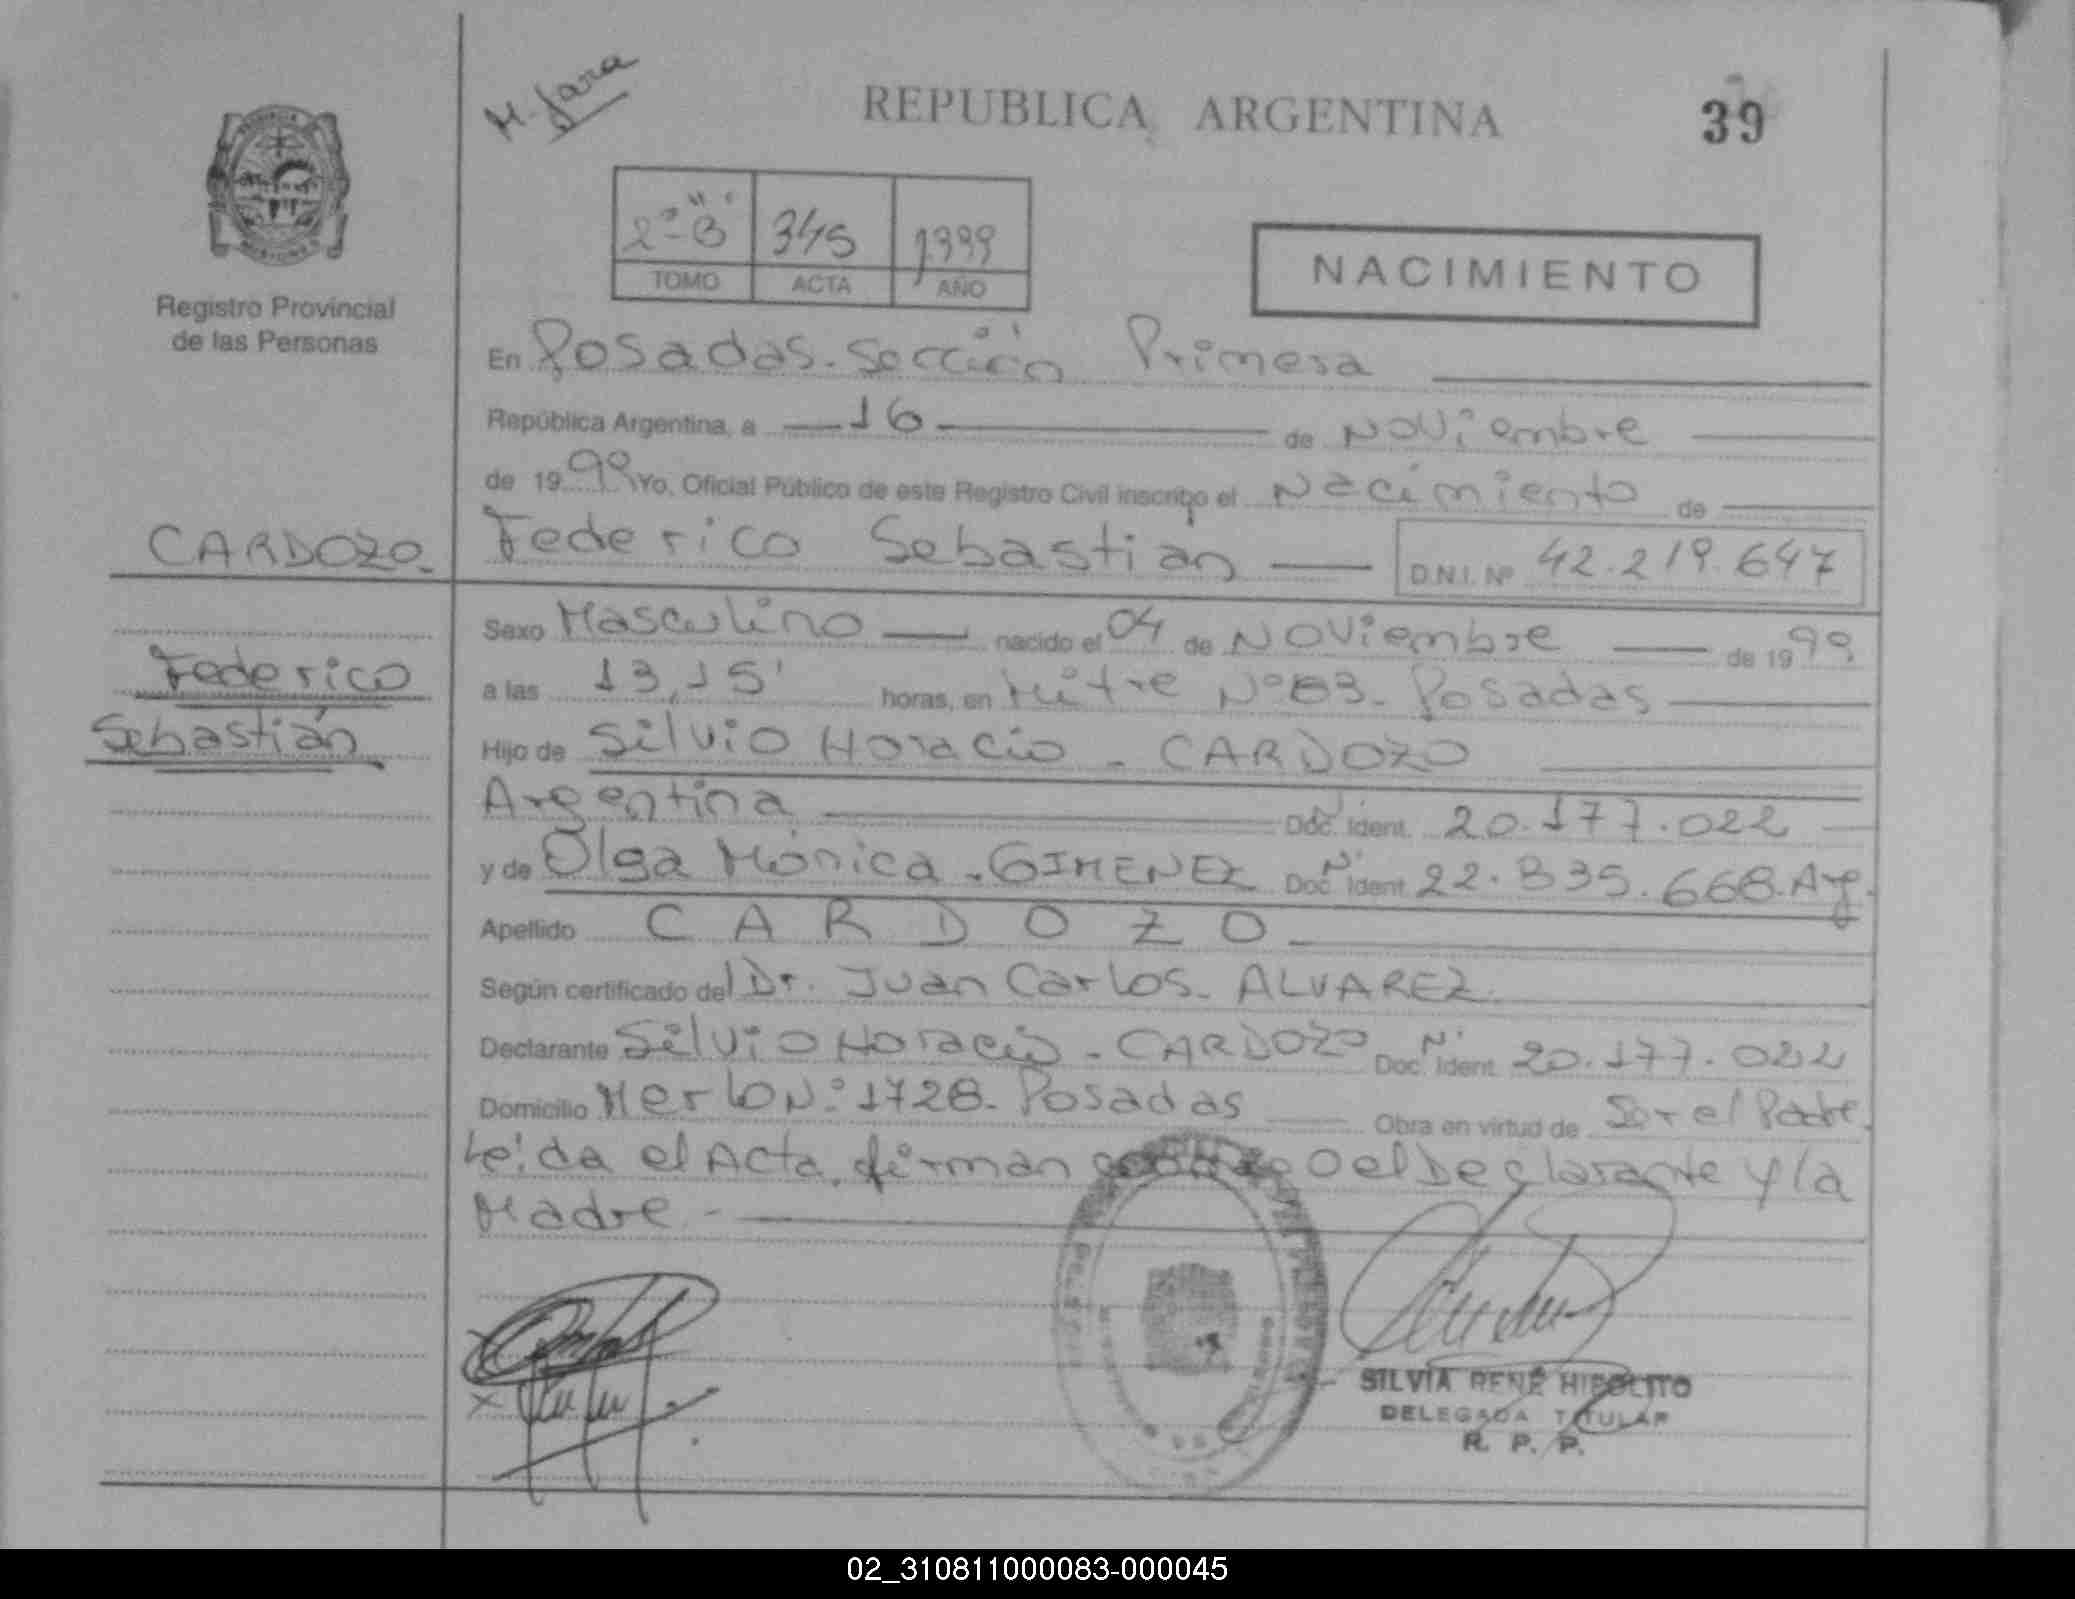 M. Jara
REPUBLICA ARGENTINA
39
2º "B" 345 1999
TOMO ACTA AÑO
NACIMIENTO
Registro Provincial
de las Personas
En Posadas - Sección Primera
República Argentina, a 16 de Noviembre
de 1999 Yo, Oficial Público de este Registro Civil inscribo el Nacimiento de
CARDOZO Federico Sebastián D.N.I. Nº 42.219.647
Federico
Sebastián
Sexo Masculino nacido el 04 de Noviembre de 1999
a las 13,15' horas, en Mitre Nº 83 - Posadas
Hijo de Silvio Horacio - CARDOZO
Argentina Doc. Ident. 20.177.022
y de Olga Mónica - GIMENEZ Doc. Nº Ident. 22.835.668. Arg.
Apellido CARDOZO
Según certificado del Dr. Juan Carlos - ALVAREZ.
Declarante Silvio Horacio - CARDOZO Doc. Nº Ident. 20.177.022
Domicilio Merlo Nº 1728 - Posadas Obra en virtud de Ser el Padre.
Leída el Acta, firman el Declarante y la
Madre -
SILVIA RENÉ HIPOLITO
DELEGADA TITULAR
R. P. P.
02_310811000083-000045